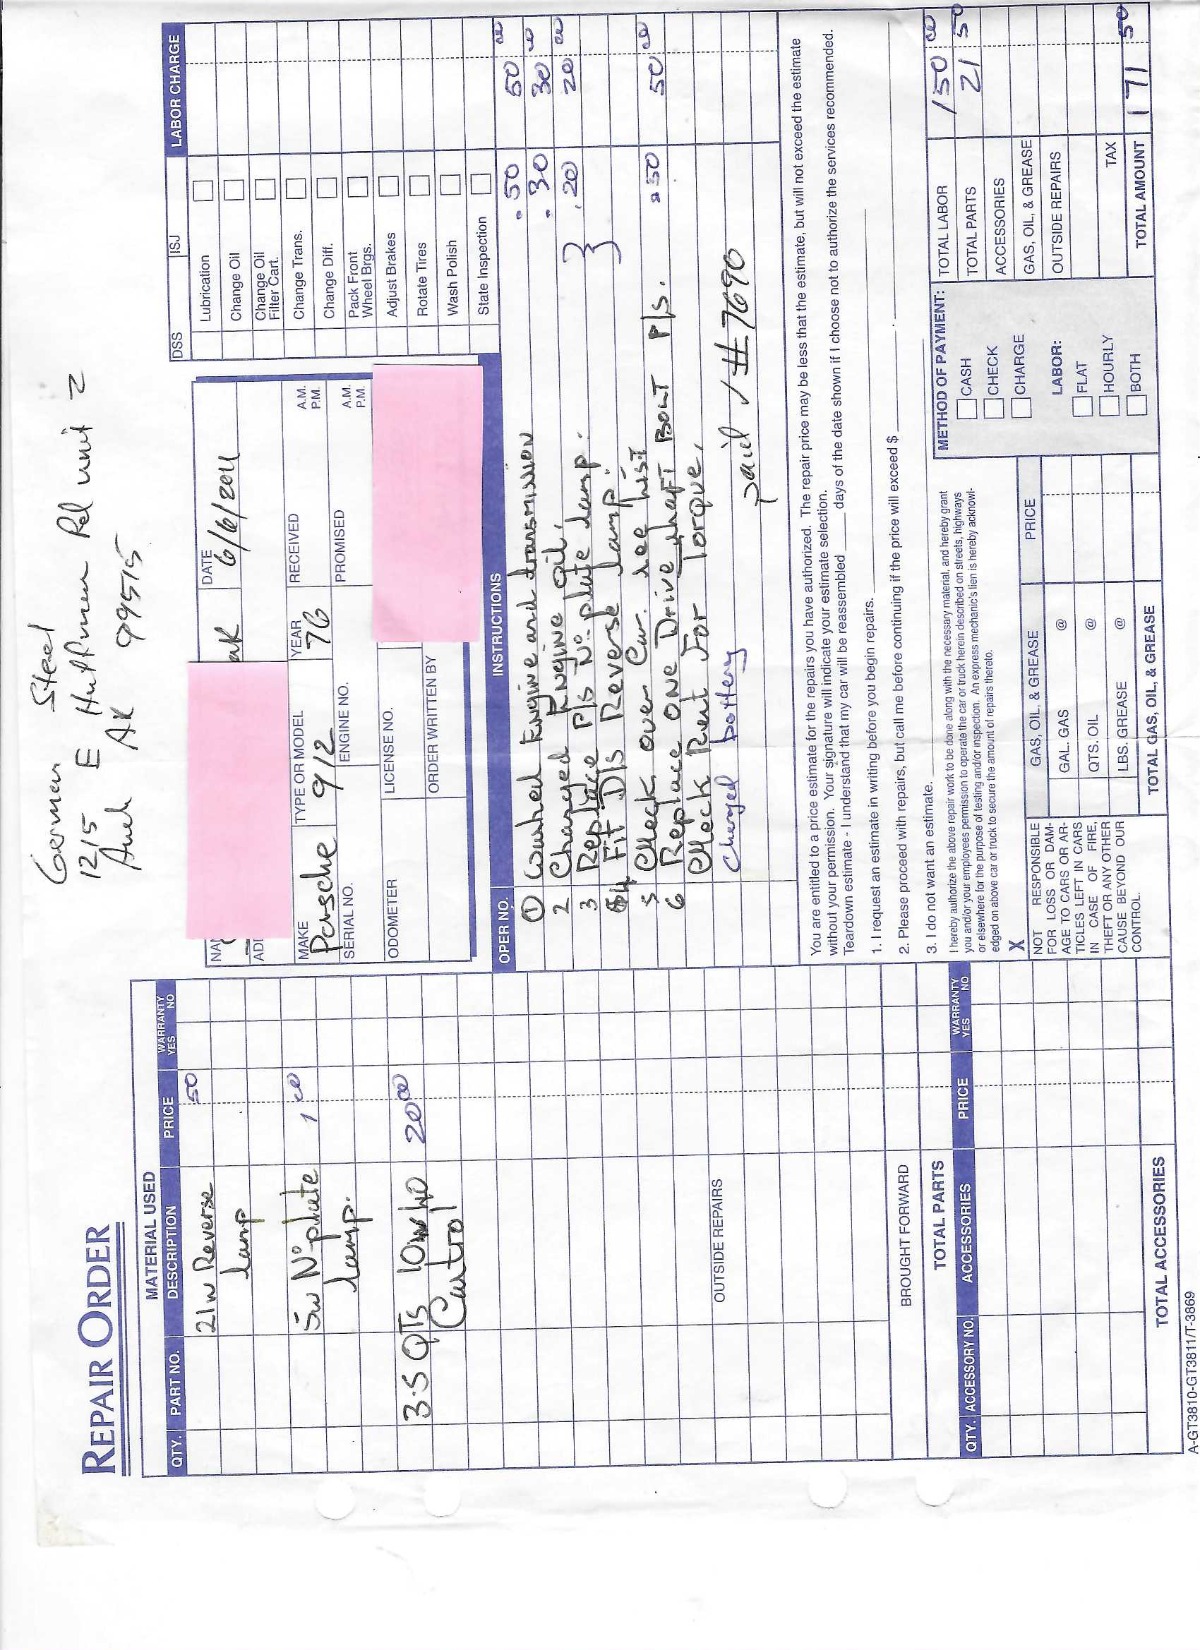 German Steel
1215 E Huffman Rd unit 2
Anch AK 99515
REPAIR ORDER
MATERIAL USED
QTY. PART NO. DESCRIPTION PRICE WARRANTY YES NO
21w Reverse 50
lamp
5w No plate 1 00
lamp.
3.5 QTS 10w40 20 00
OUTSIDE REPAIRS
BROUGHT FORWARD
TOTAL PARTS
QTY. ACCESSORY NO. ACCESSORIES PRICE WARRANTY YES NO
TOTAL ACCESSORIES
A-GT3810-GT3811/T-3869
AK DATE 6/6/2011
MAKE Porsche TYPE OR MODEL 912 YEAR 76 RECEIVED A.M. P.M.
SERIAL NO. ENGINE NO. PROMISED A.M. P.M.
ODOMETER LICENSE NO.
ORDER WRITTEN BY
DSS ISJ LABOR CHARGE
Lubrication
Change Oil
Change Oil
Filter Cart.
Change Trans.
Change Diff.
Pack Front
Wheel Brgs.
Adjust Brakes
Rotate Tires
Wash Polish
State Inspection
OPER NO. INSTRUCTIONS
1 Washed Engine and transmission .50 50 00
2 Changed Engine oil. .30 30 00
3 Replace P/s No plate lamp. .20 20 00
4 Fit D/s Reverse lamp.
5 Check over Car. see list
6 Replace One Drive shaft BOLT P/s. .50 50 00
Check Rest For Torque.
Charged battery paid ✓ #7690
You are entitled to a price estimate for the repairs you have authorized. The repair price may be less that the estimate, but will not exceed the estimate
without your permission. Your signature will indicate your estimate selection.
Teardown estimate - I understand that my car will be reassembled ____ days of the date shown if I choose not to authorize the services recommended.
1. I request an estimate in writing before you begin repairs.
2. Please proceed with repairs, but call me before continuing if the price will exceed $
3. I do not want an estimate.
I hereby authorize the above repair work to be done along with the necessary material, and hereby grant
you and/or your employees permission to operate the car or truck herein described on streets, highways
or elsewhere for the purpose of testing and/or inspection. An express mechanic's lien is hereby acknowl-
edged on above car or truck to secure the amount of repairs thereto.
X
NOT RESPONSIBLE
FOR LOSS OR DAM-
AGE TO CARS OR AR-
TICLES LEFT IN CARS
IN CASE OF FIRE,
THEFT OR ANY OTHER
CAUSE BEYOND OUR
CONTROL.
GAS, OIL, & GREASE PRICE
GAL. GAS @
QTS. OIL @
LBS. GREASE @
TOTAL GAS, OIL, & GREASE
METHOD OF PAYMENT:
CASH
CHECK
CHARGE
LABOR:
FLAT
HOURLY
BOTH
TOTAL LABOR 150 00
TOTAL PARTS 21 50
ACCESSORIES
GAS, OIL, & GREASE
OUTSIDE REPAIRS
TAX
TOTAL AMOUNT 171 50